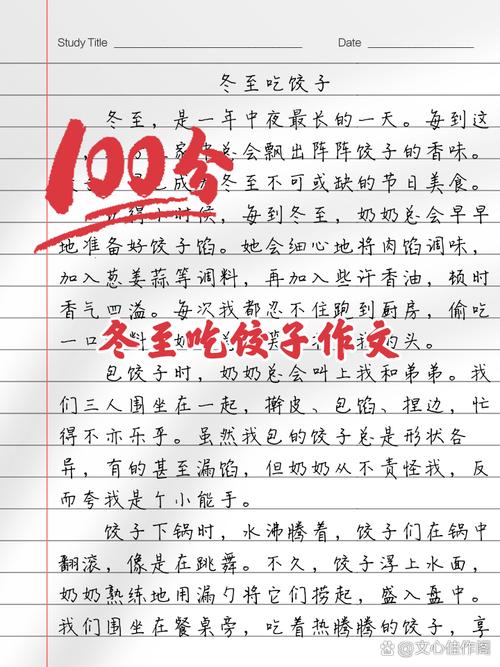 Study Title
Date
冬至吃饺子
冬至，是一年中夜最长的一天。每到这
总会飘出阵阵饺子的香味。
冬至不可或缺的节日美食。
100分
小时候，每到冬至，奶奶总会早早
地准备好饺子馅。她会细心地将肉馅调味，
加入葱姜蒜等调料，再加入些许香油，顿时
香气四溢。每次我都忍不住跑到厨房，偷吃
一口
的头。
冬至吃饺子作文
包饺子时，奶奶总会叫上我和弟弟。我
们三人围坐在一起，擀皮、包馅、捏边，忙
得不亦乐乎。虽然我包的饺子总是形状各
异，有的甚至漏馅，但奶奶从不责怪我，反
而夸我是个小能手。
饺子下锅时，水沸腾着，饺子们在锅中
翻滚，像是在跳舞。不久，饺子浮上水面，
奶奶熟练地用漏勺将它们捞起，盛入盘中。
我们围坐在餐桌旁，吃着热腾腾的饺子，享
@文心佳作阁